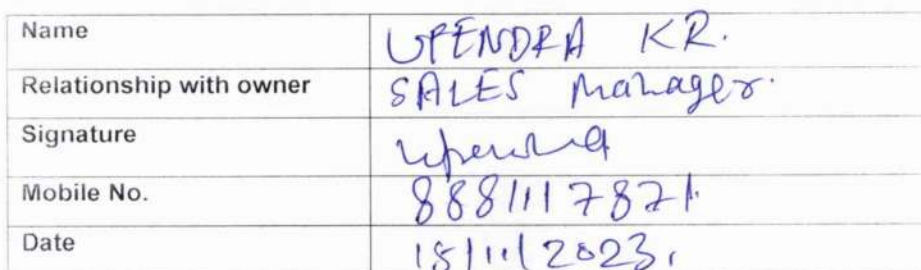 Name UPENDRA KR.
Relationship with owner SALES Manager.
Signature Upendra
Mobile No. 8881117871.
Date 15/11/2023.